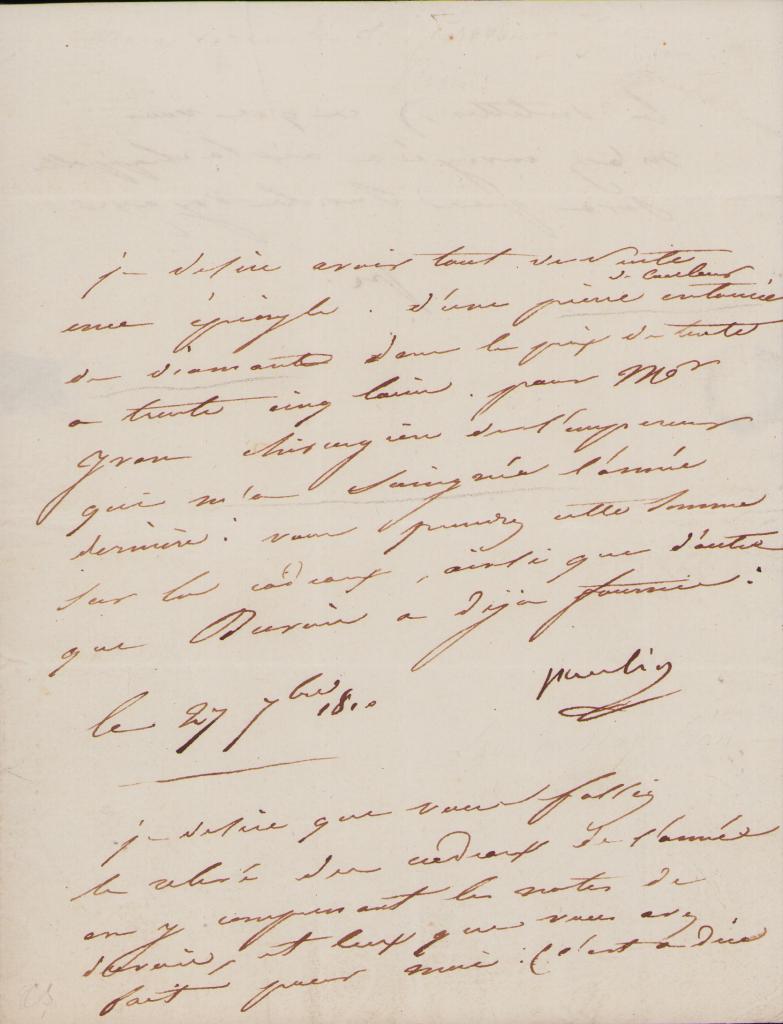 je desire avoir tout de suite
une épingle. d'une pierre de couleur entourée
de diamants dans le prix de trente
a trente cinq louis. pour Mr
yvan chirurgien de l'empereur
qui m'a soignée l'année
dernière: vous prendrez cette somme
sur les cadeaux, ainsi que d'autre
que Devoix a déja fournie:
le 27 7bre 1810
pauline
je desire que vous fassiez
le relevé des cadeaux de l'année
en y comprenant les notes de
devoix, et ceux que vous avez
fait pour moi: (c'est a dire